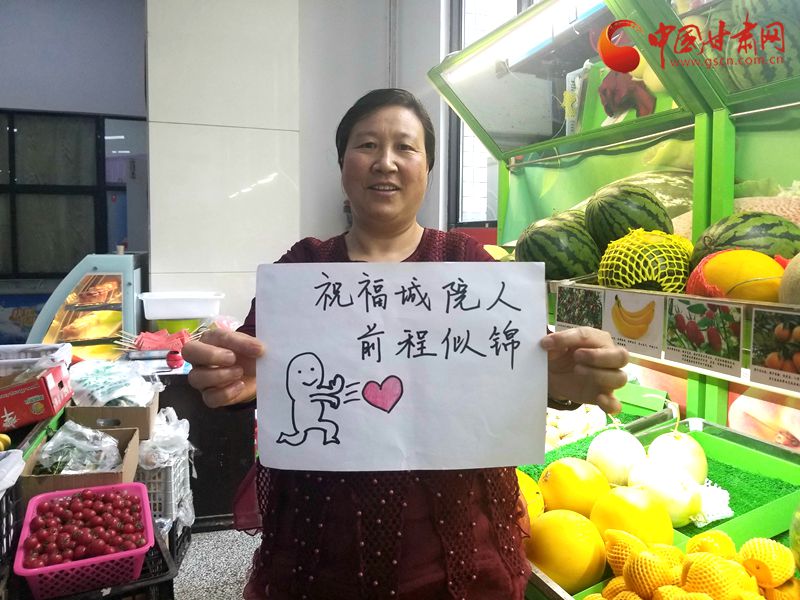 中国甘肃网
www.gscn.com.cn
祝福城院人
前程似锦